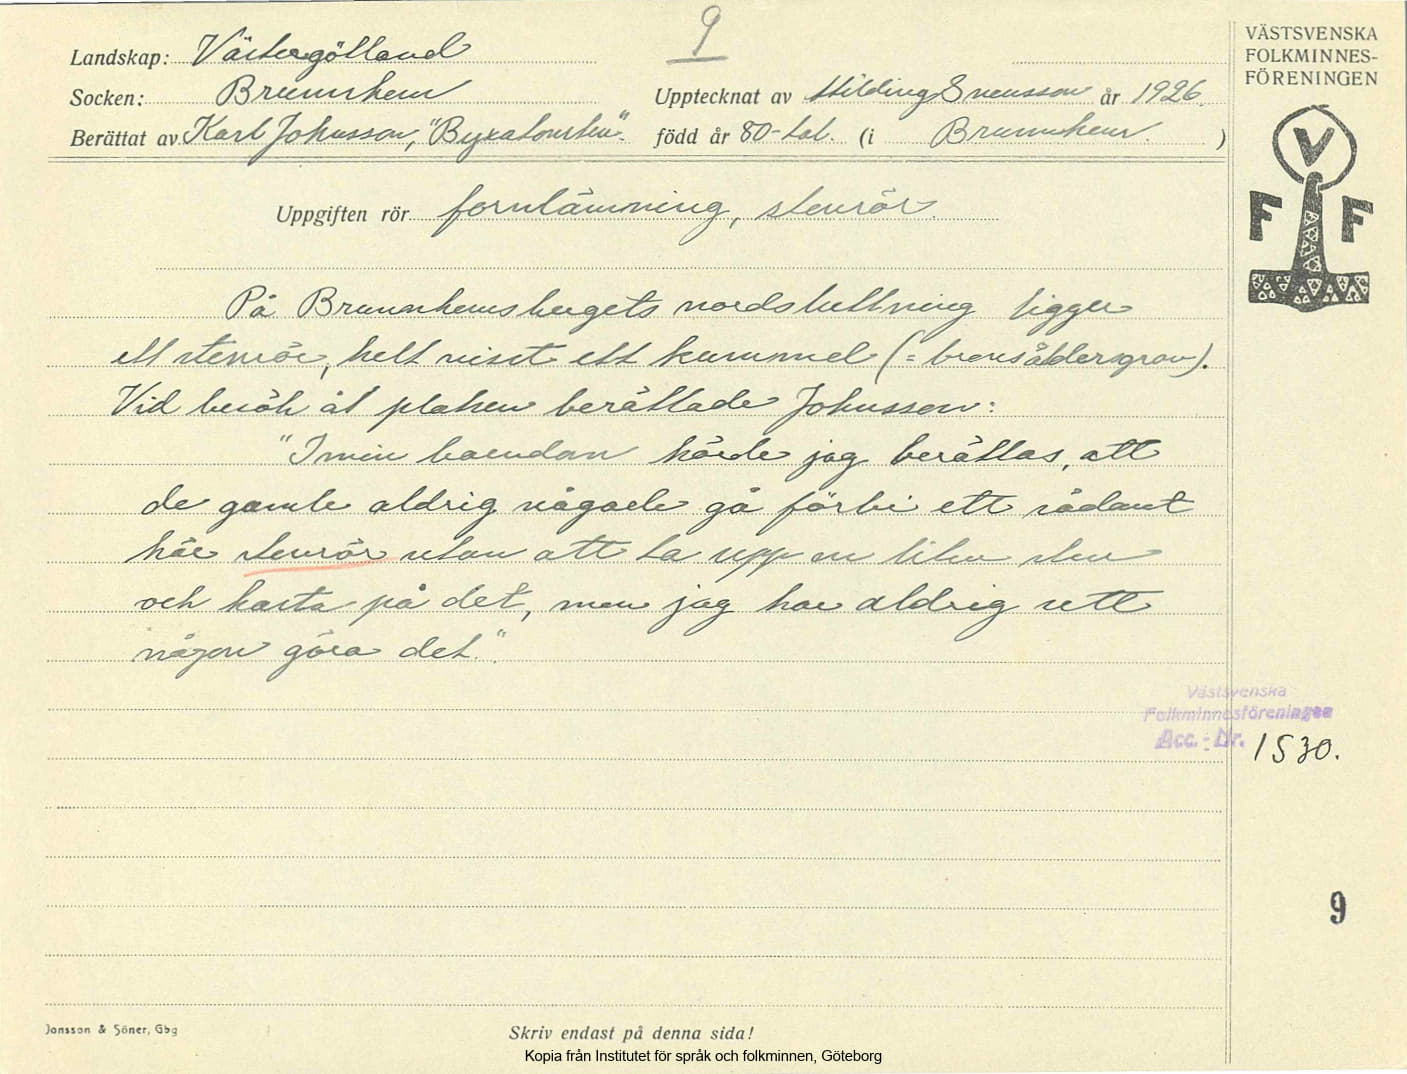 9
VÄSTSVENSKA
FOLKMINNES-
FÖRENINGEN
Landskap: Västergötland
Socken: Brunnhem Upptecknat av Hilding Svensson år 1926.
Berättat av Karl Johnsson, född år 80-tal. (i Brunnhem. )
Uppgiften rör fornlämning, stenrör.
V
F F
På Brunnhemsbergets nordsluttning ligger
ett stenrör, helt visst ett kummel (= bronsåldersgrav).
Vid besök åt platsen berättade Johnsson:
"I min barndom hörde jag berättas, att
de gamle aldrig vågade gå förbi ett sådant
här stenrör utan att ta upp en liten sten
och kasta på det, men jag har aldrig sett
någon göra det."
Västsvenska
Folkminnesföreningen
Acc. - Nr. 1530.
9
Jonsson & Söner, Gbg
Skriv endast på denna sida!
Kopia från Institutet för språk och folkminnen, Göteborg